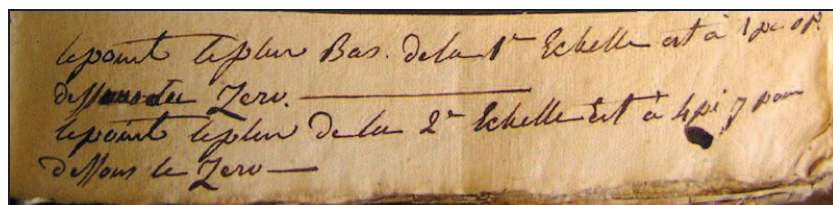 le point le plus Bas. de la 1re Echelle est à 1 pi 01
dessous du Zero.
le point le plus de la 2e Echelle Est à 4 pi 7 pou
dessous le Zero